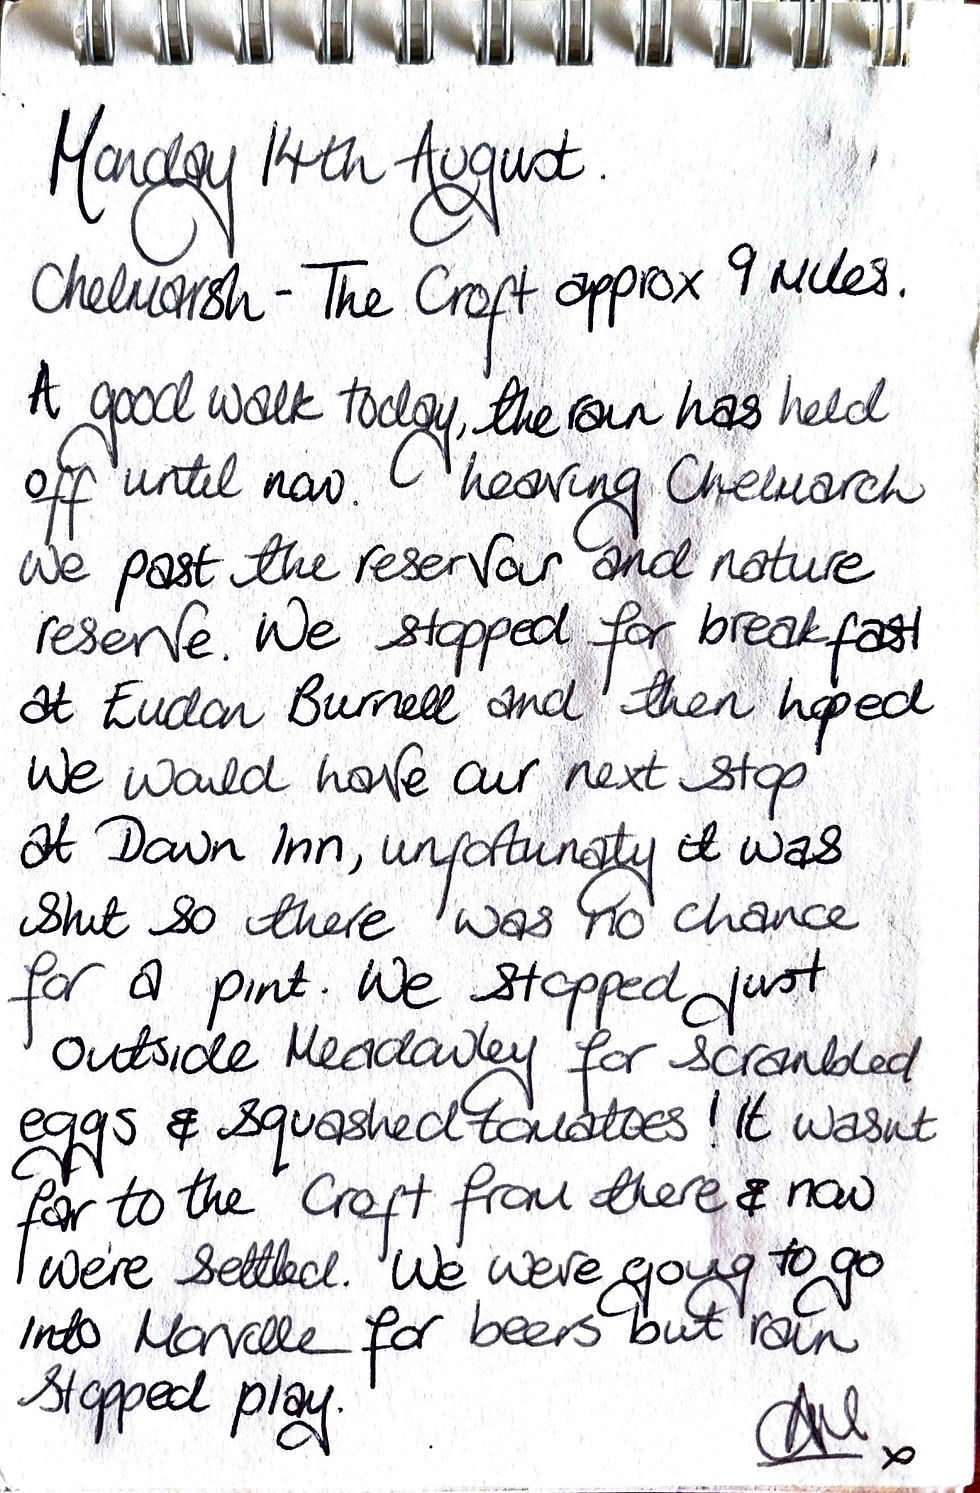 Monday 14th August.
Chelmarsh - The Croft approx 9 Miles.
A good walk today, the rain has held
off until now. Leaving Chelmarch
we past the reservoir and nature
reserve. We stopped for breakfast
at Eudon Burnell and then hoped
We would have our next stop
at Down Inn, unfortunatly it was
shut so there was no chance
for a pint. We stopped just
outside Meadowley for scrambled
eggs & squashed tomatoes! It wasnt
far to the Croft from there & now
We're settled. We were going to go
into Morville for beers but rain
stopped play.
x